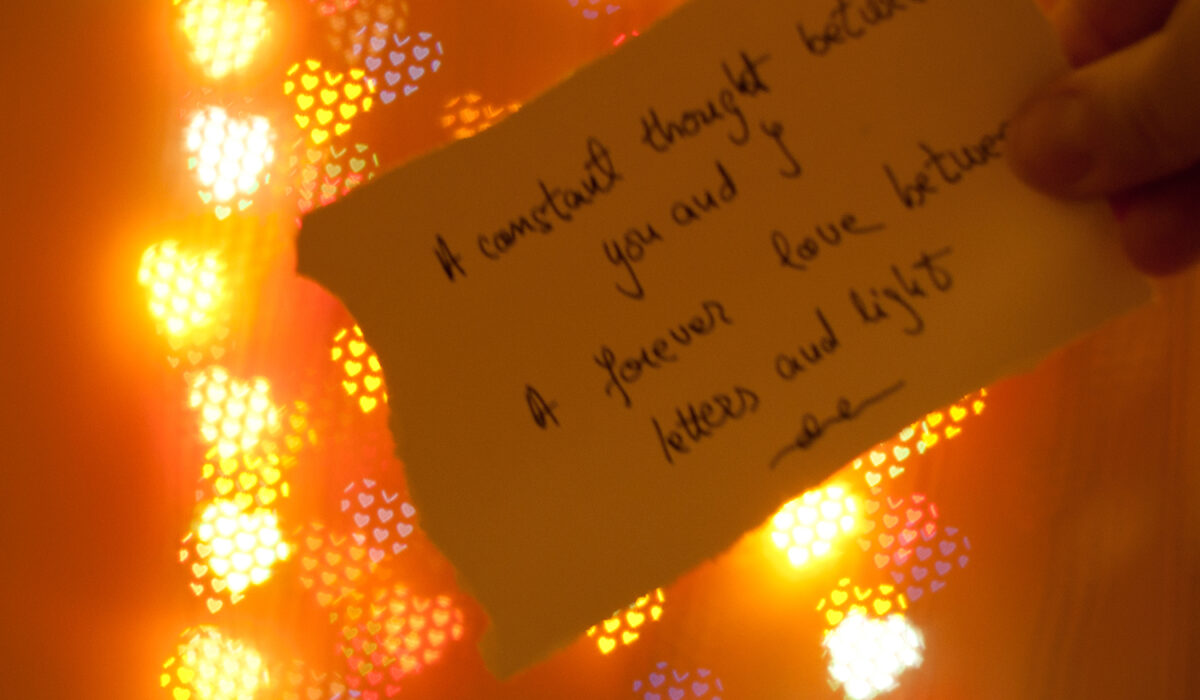 A constant thought between
you and y
A forever love between
letters and light